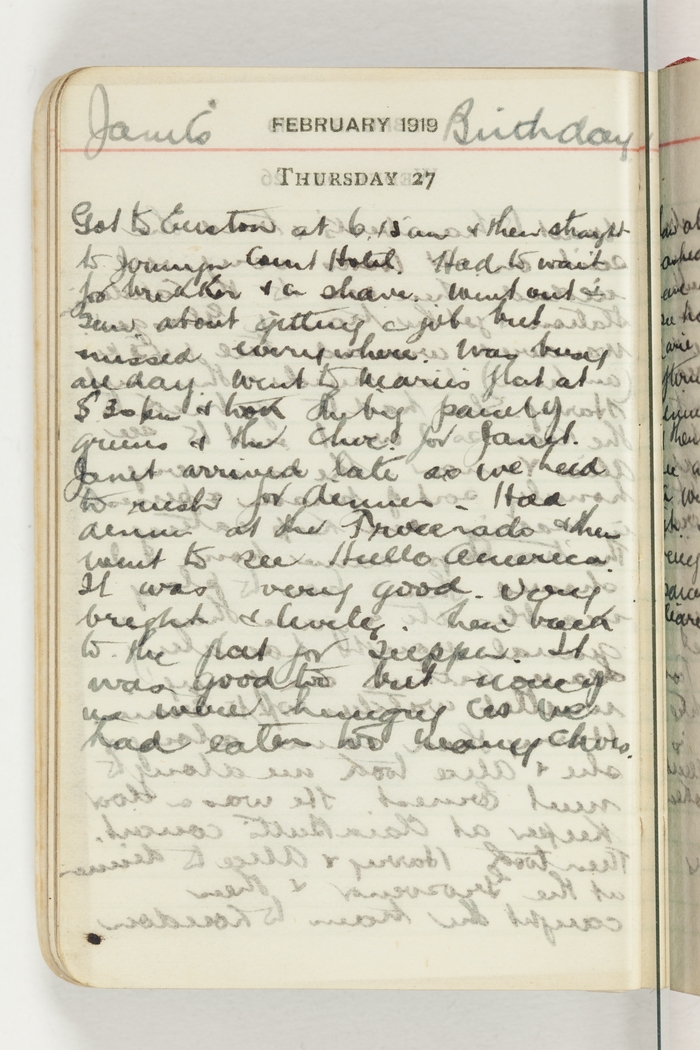 Janet's FEBRUARY 1919 Birthday
THURSDAY 27
Got to Euston at 6.15 am & then straight
to Court Hotel. Had to wait
for breakker & a shave. Went out &
saw about getting a job but
missed everywhere. Was busy
all day went to Maries flat at
5 30 pm & took the big parcel of
greens & the Chocs for Janet.
Janet arrived late so we had
to rush for dinner. Had
dinner at the Trocerado & then
went to see Hullo America.
It was very good. Very
bright & lively. Then back
to the flat for supper. It
was good too but
we were hungry as we
had eaten too many Chocs.